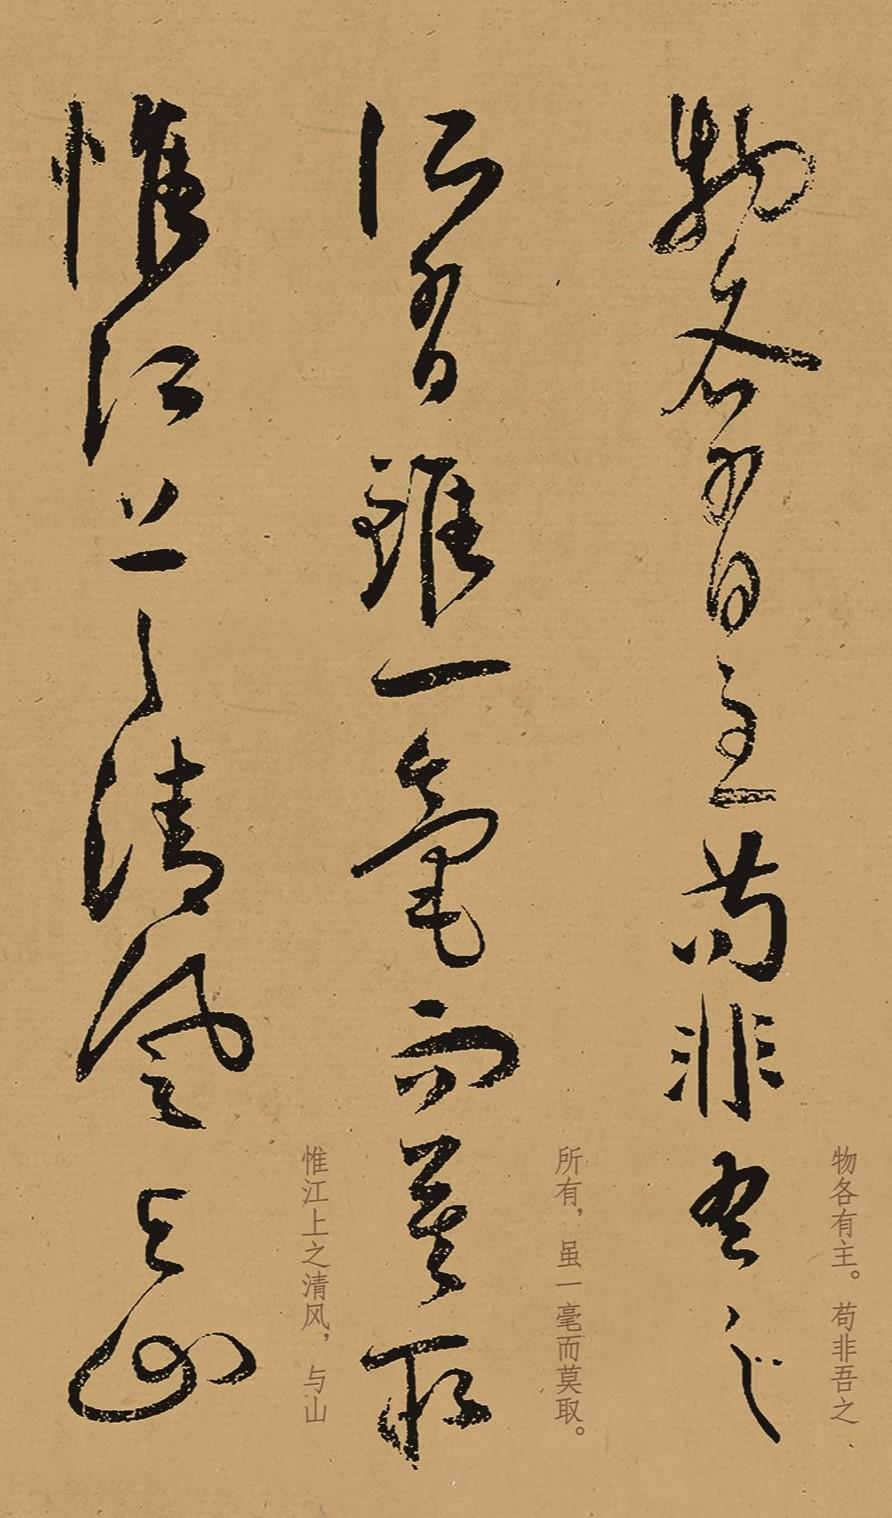 物各有主。苟非吾之
物各有主苟非吾之
所有，虽一毫而莫取。
所有雖一毫而莫取
惟江上之清风，与山
惟江上之清風與山